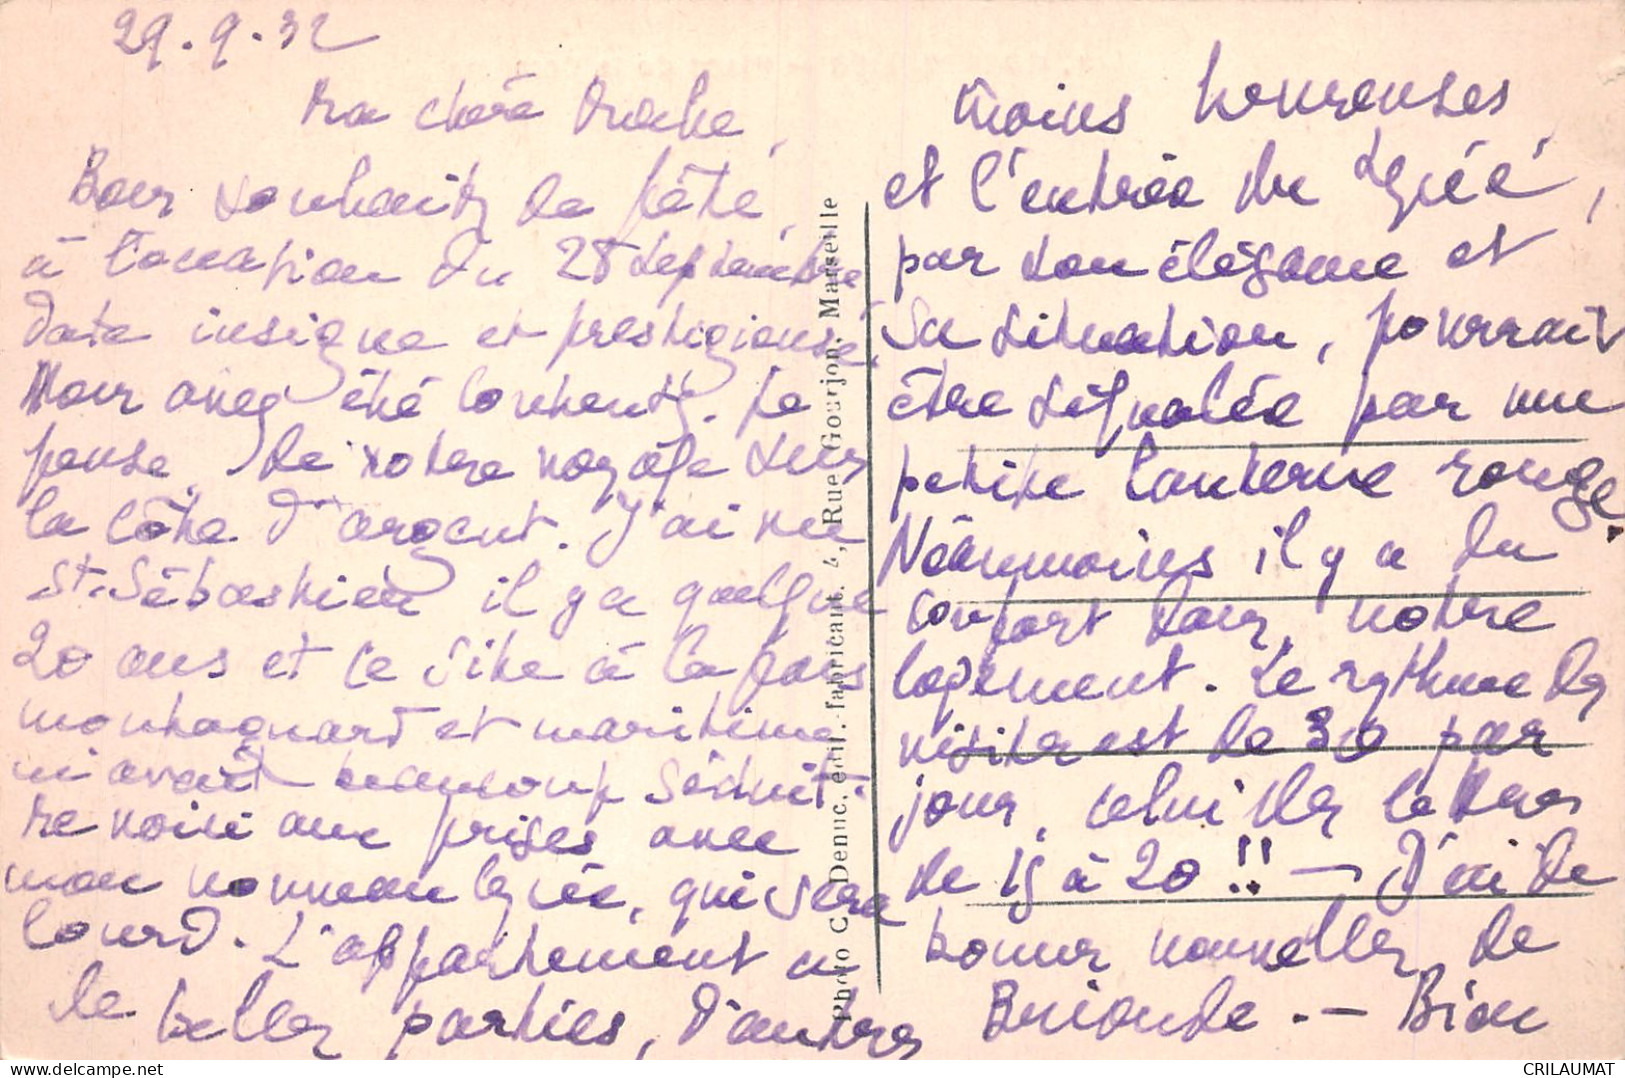 29.9.32
Ma chère
Bons souhaits de fête,
à l'occasion du 28 septembre
date insigne et prestigieuse.
Vous avez été contents, je
pense, de votre voyage sur
la côte d'argent. J'ai vu
St. Sébastien il y a quelque
20 ans et ce site à la fois
montagnard et maritime
m'avait beaucoup séduit.
Me voici aux prises avec
mon nouveau lycée, qui sera
lourd. L'appartement a
de belles parties, d'autres
moins heureuses,
et l'entrée du lycée,
par son élégance et
sa situation, pourrait
être signalée par une
petite lanterne rouge.
Néanmoins il y a du
confort dans notre
logement. Le rythme des
visites est de 30 par
jour, celui des lettres
de 15 à 20 !! — J'ai de
bonnes nouvelles de
Brionde. — Bien
Photo C. Denuc, édit.-fabricant. 4, Rue Gourjon, Marseille
CRILAUMAT